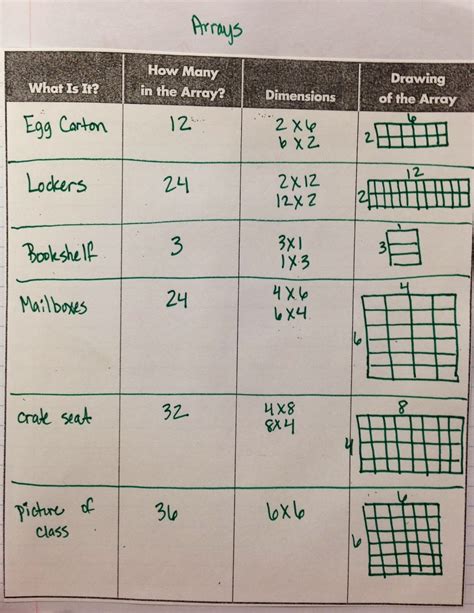 Arrays
What Is It?
How Many
in the Array?
Dimensions
Drawing
of the Array
Egg Carton
12
2 x 6
6 x 2
6
2
Lockers
24
2x12
12x2
12
2
Bookshelf
3
3x1
1x3
3
Mailboxes
24
4x6
6x4
4
6
crate seat
32
4x8
8x4
8
4
picture of
class
36
6x6
6
6